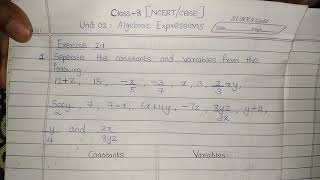 Class-8 [NCERT/CBSE]
Unit 02: Algebraic Expressions
Exercise 2.1
1 Seperate the constants and variables from the
following.
12+z, 15, -x/5, -3/7, x, 3, 2/3 xy,
5xy/2, 7, 7-x, 6x+4y, -7z, 8yz/3x, y+4,
y/4 and 2x/8yz
Constants Variables